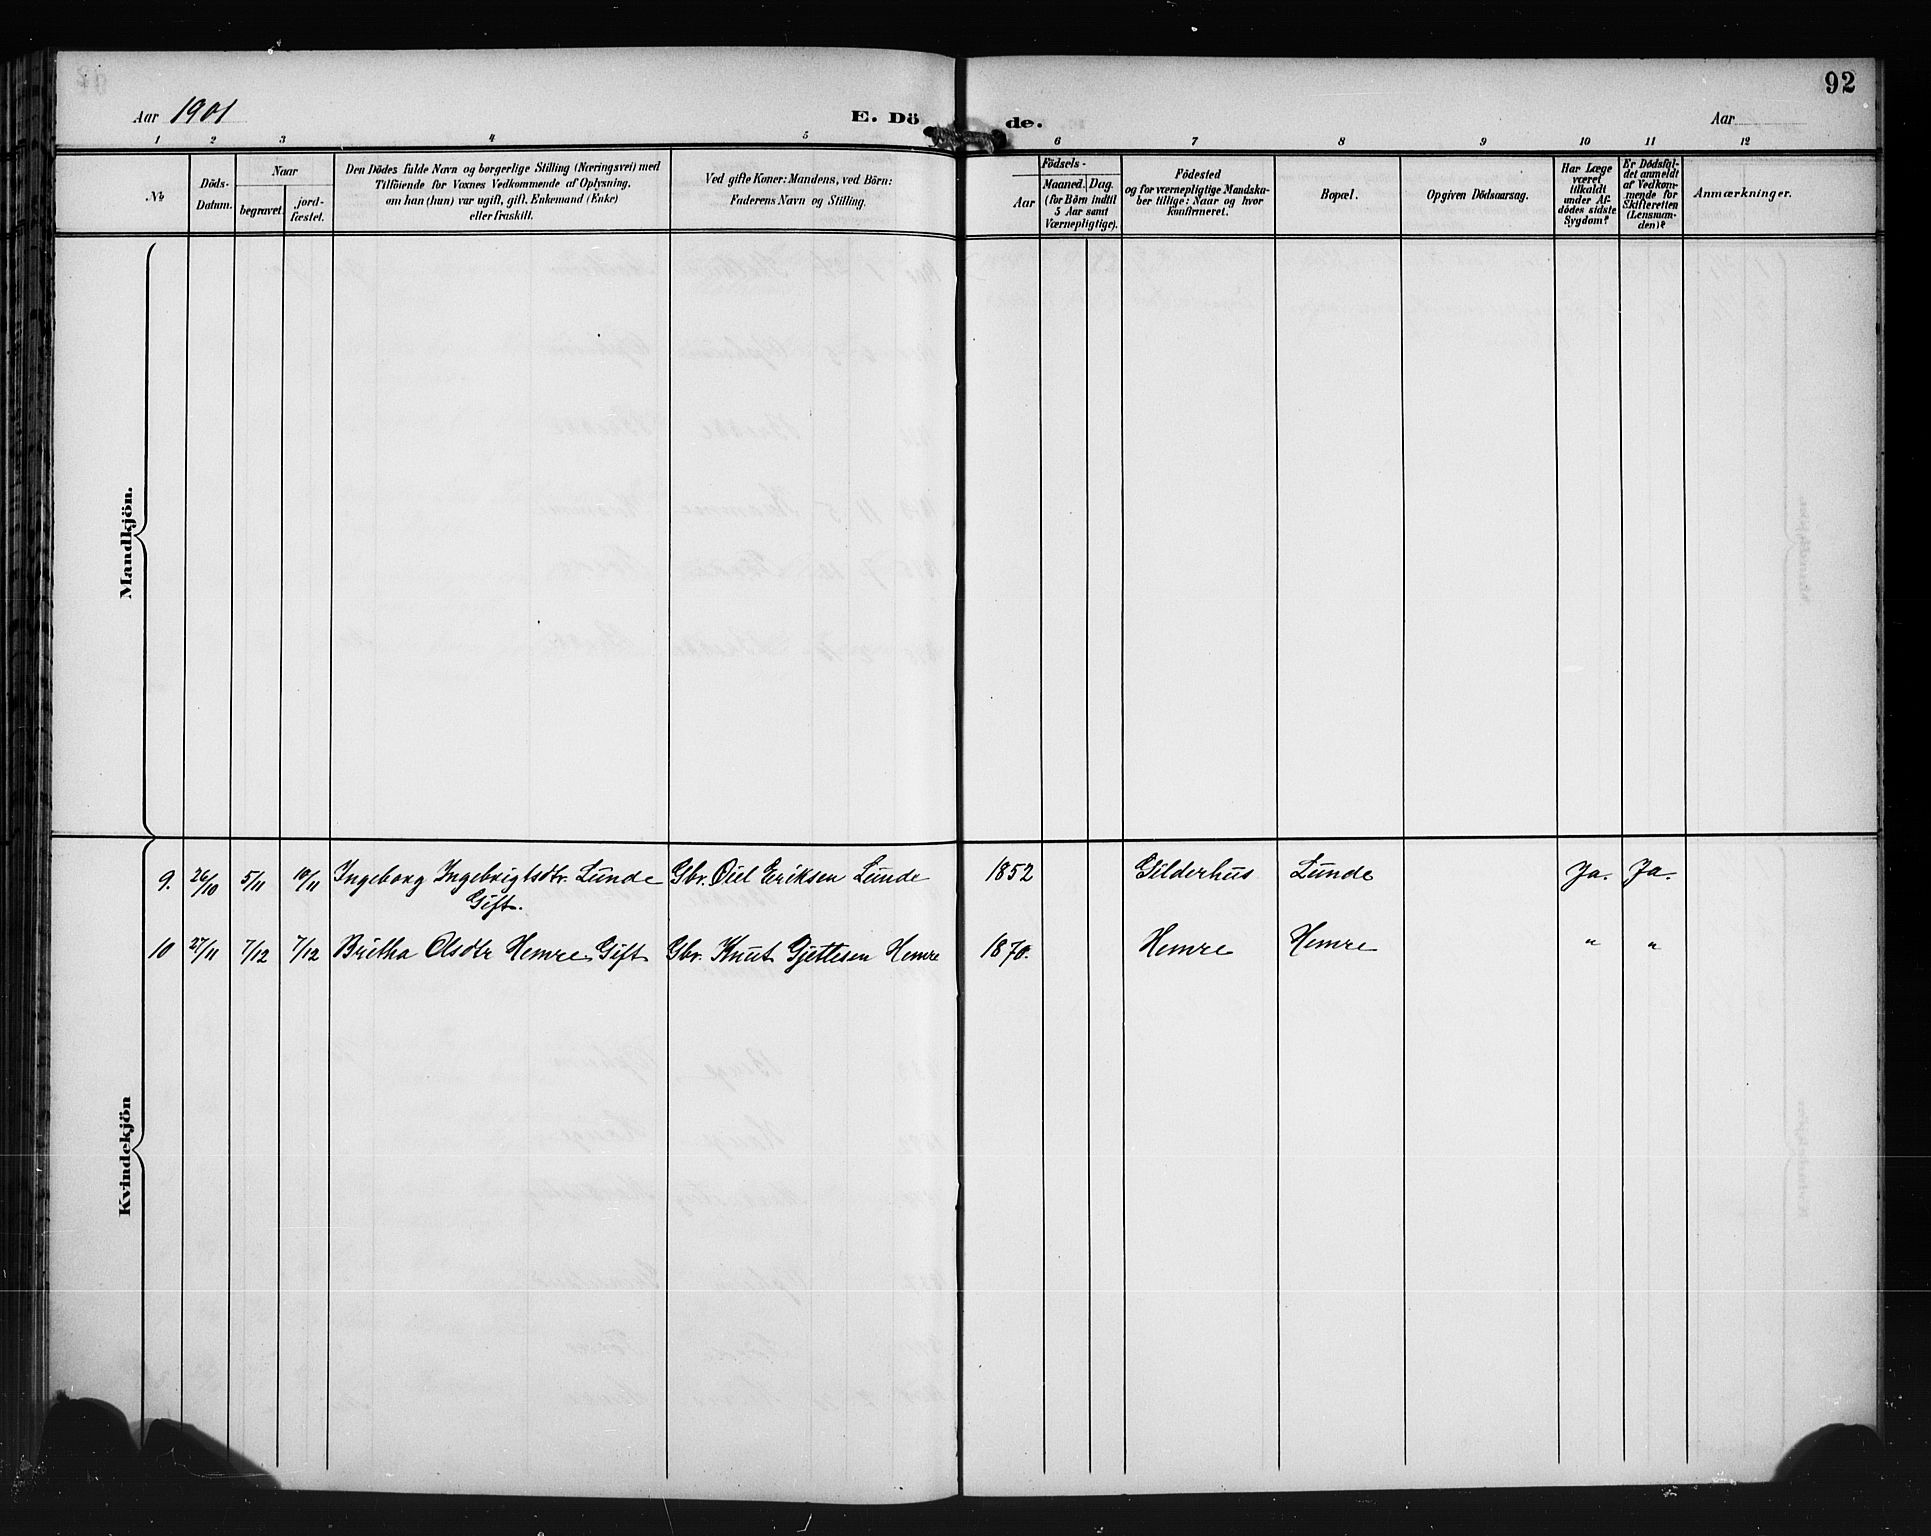 92
Aar 1901
E. Döde.
Aar
1 2 3 4 5 6 7 8 9 10 11 12
No.
Döds-
Datum.
Naar
begravet.
jord-
fæstet.
Den Dödes fulde Navn og borgerlige Stilling (Næringsvei) med
Tilföiende for Voxnes Vedkommende af Oplysning,
om han (hun) var ugift, gift, Enkemand (Enke)
eller fraskilt.
Ved gifte Koner: Mandens, ved Börn:
Faderens Navn og Stilling.
Födsels-
Aar
Maaned. Dag.
(for Börn indtil
5 Aar samt
Værnepligtige).
Födested
og for værnepligtige Mandska-
ber tillige: Naar og hvor
konfirmeret.
Bopæl.
Opgiven Dödsaarsag.
Har Læge
været
tilkaldt
under Af-
dödes sidste
Sygdom?
Er Dödsfal-
det anmeldt
af Vedkom-
mende for
Skifteretten
(Lensman-
den)?
Anmærkninger.
Mandkjön.
9. 26/10 5/11 10/11 Ingeborg Ingebrigtsdtr. Lunde Gbr. Oül Eriksen Lunde 1852 Gilderhus Lunde Ja. Ja.
Gift.
10 27/11 7/12 7/12 Britha Olsdtr Hemre Gift Gbr. Knut Gjettesen Hemre 1870. Hemre Hemre " "
Kvindekjön